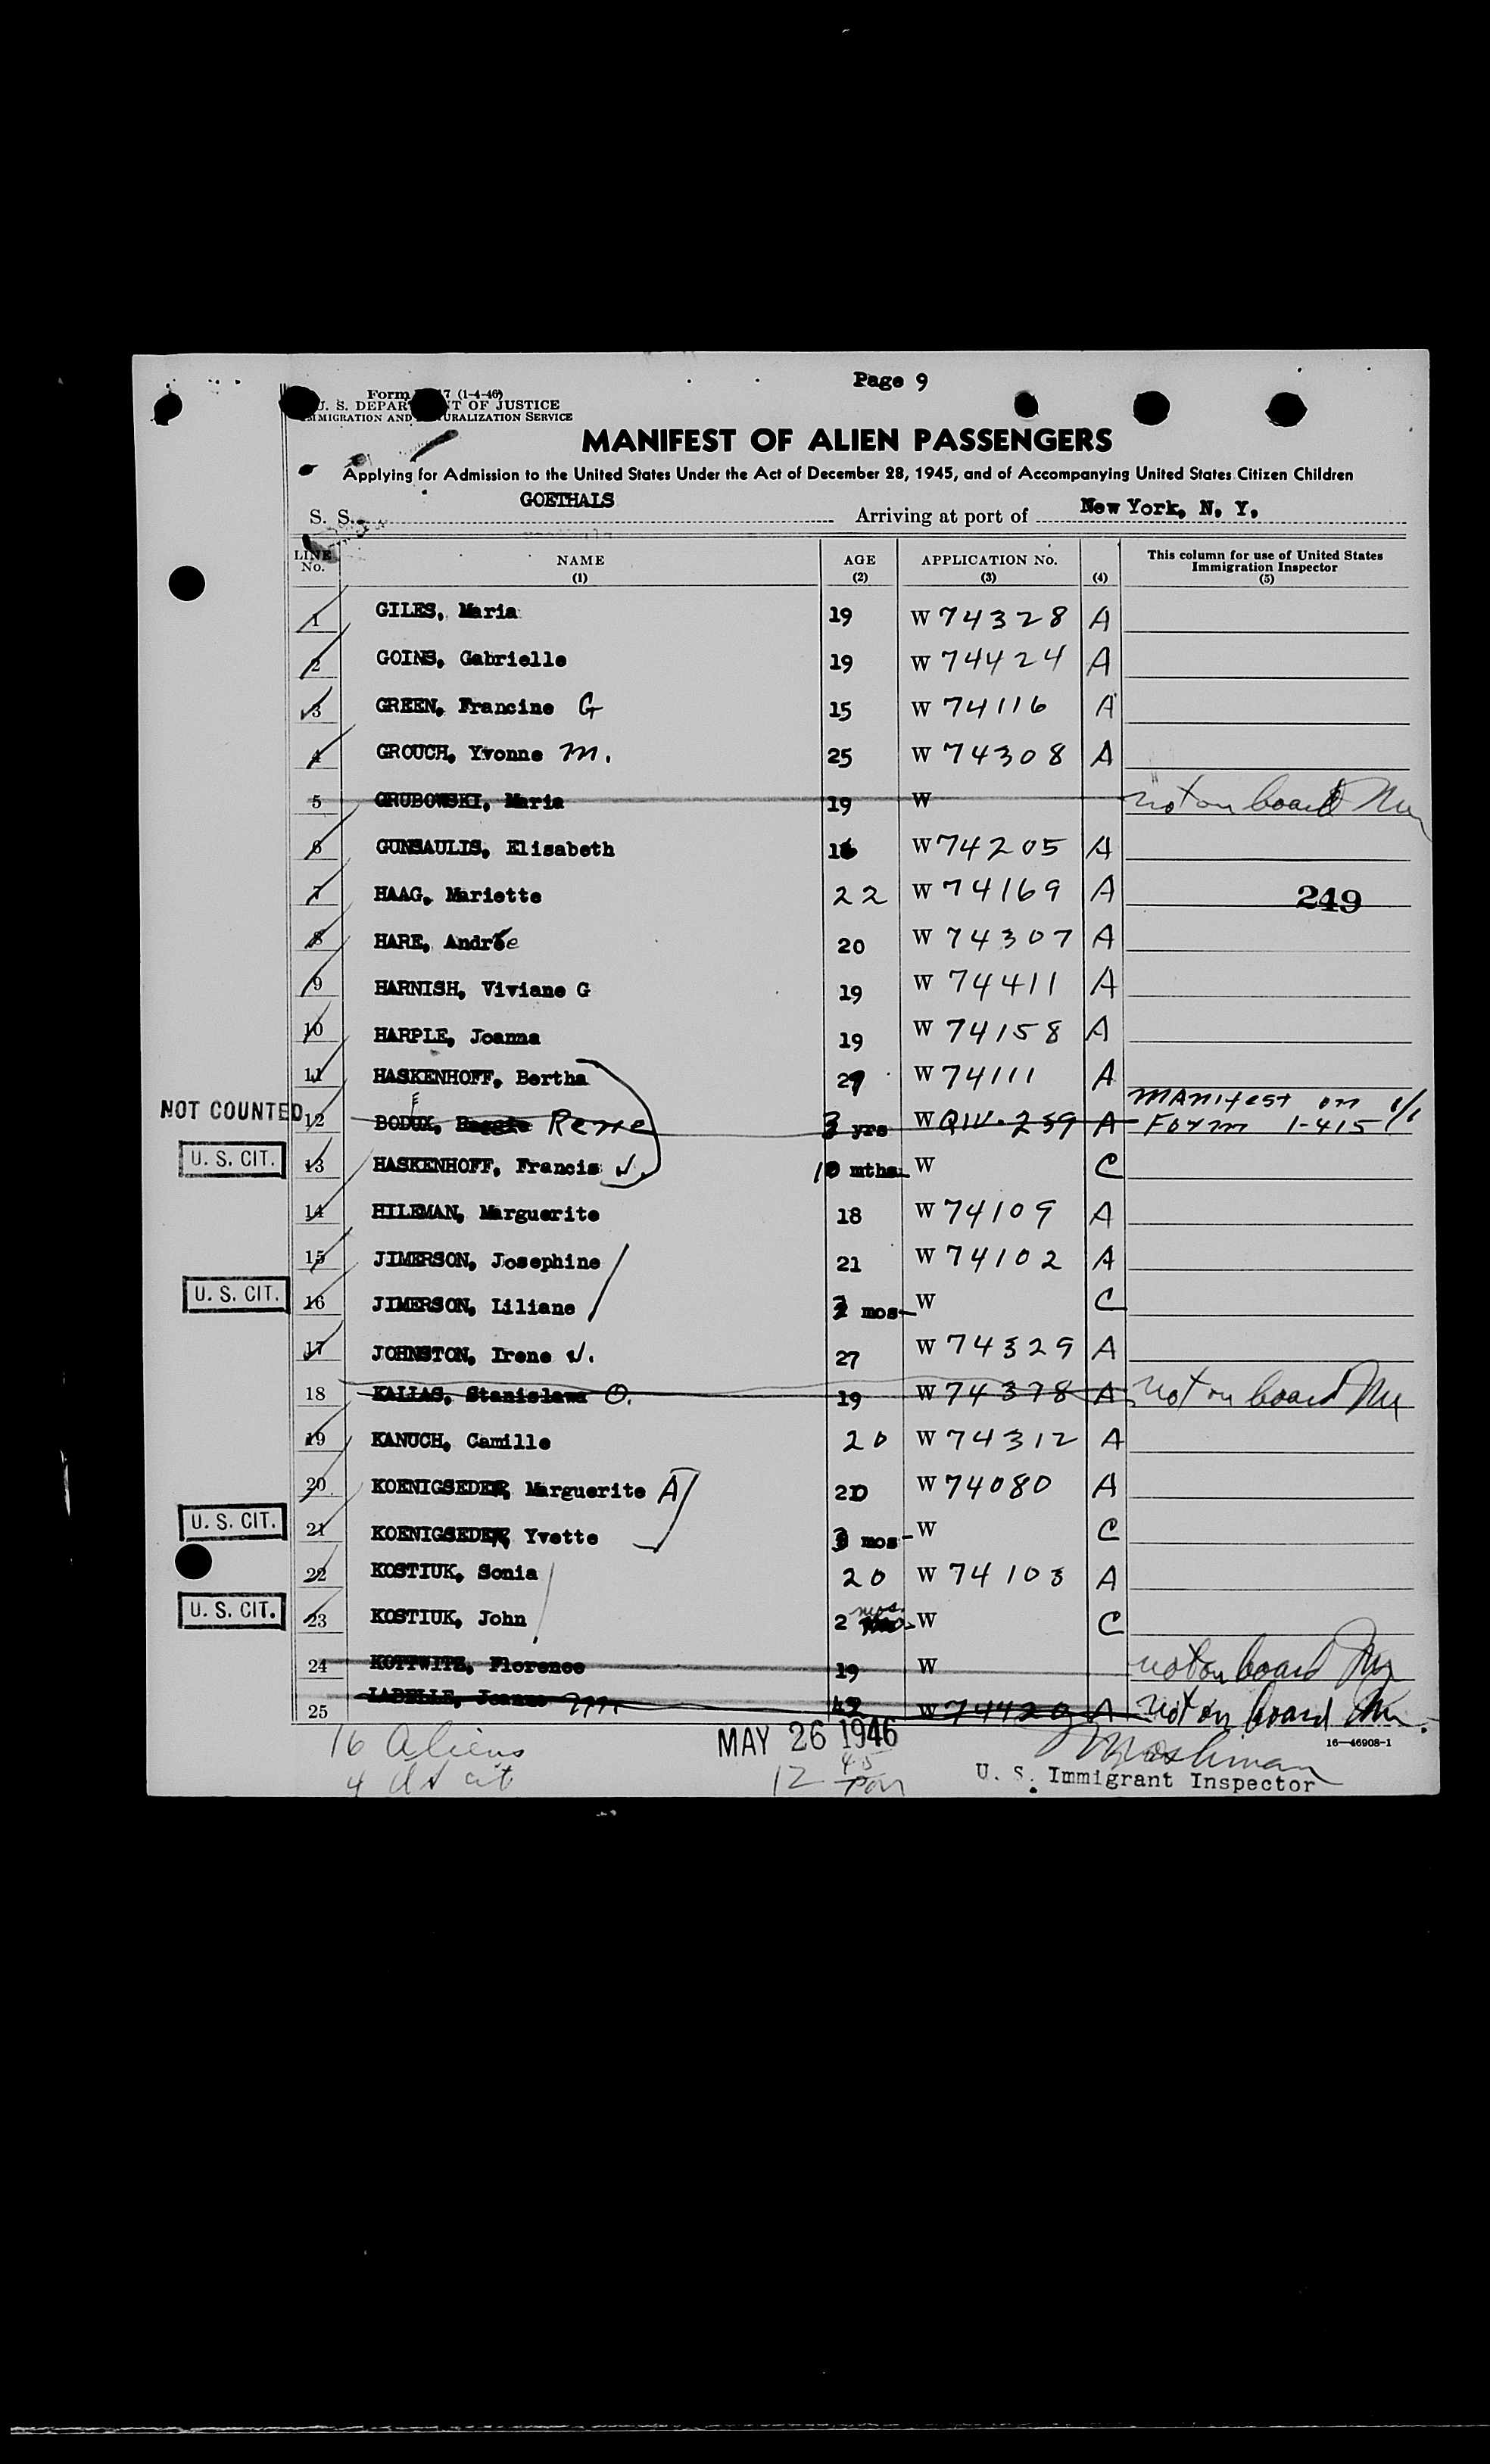 Page 9
Form 7 (1-4-46)
U. S. DEPAR T OF JUSTICE
IMMIGRATION AND NATURALIZATION SERVICE
MANIFEST OF ALIEN PASSENGERS
Applying for Admission to the United States Under the Act of December 28, 1945, and of Accompanying United States Citizen Children
S. S. GOETHALS Arriving at port of New York, N. Y.
LINE No. NAME (1) AGE (2) APPLICATION No. (3) (4) This column for use of United States Immigration Inspector (5)
1 GILES, Maria 19 W 74328 A
2 GOINS, Gabrielle 19 W 74424 A
3 GREEN, Francine G 15 W 74116 A
4 GROUCH, Yvonne M. 25 W 74308 A
5 GRUBOWSKI, Maria 19 W not on board
6 GUNSAULIS, Elisabeth 16 W 74205 A
7 HAAG, Mariette 22 W 74169 A 249
8 HARE, Andrée 20 W 74307 A
9 HARNISH, Viviane G 19 W 74411 A
10 HARPLE, Joanna 19 W 74158 A
11 HASKENHOFF, Bertha 27 W 74111 A
NOT COUNTED 12 BODUX, Rene 3 yrs W QIV. 259 A Manifest on Form I-415
U. S. CIT. 13 HASKENHOFF, Francis J. 10 mths W C
14 HILEMAN, Marguerite 18 W 74109 A
15 JIMERSON, Josephine 21 W 74102 A
U. S. CIT. 16 JIMERSON, Liliane mos W C
17 JOHNSTON, Irene J. 27 W 74329 A
18 KALLAS, Stanislawa O. 19 W 74378 A not on board
19 KANUCH, Camille 20 W 74312 A
20 KOENIGSEDER, Marguerite A 20 W 74080 A
U. S. CIT. 21 KOENIGSEDER, Yvette mos W C
22 KOSTIUK, Sonia 20 W 74103 A
U. S. CIT. 23 KOSTIUK, John 2 mos. W C
24 KOTTWITZ, Florence 19 W not on board
25 LABELLE, Jeanne M. W 74429 A not on board
16 Aliens MAY 26 1946
4 US cit 12 45 pm
U. S. Immigrant Inspector
16—46908-1